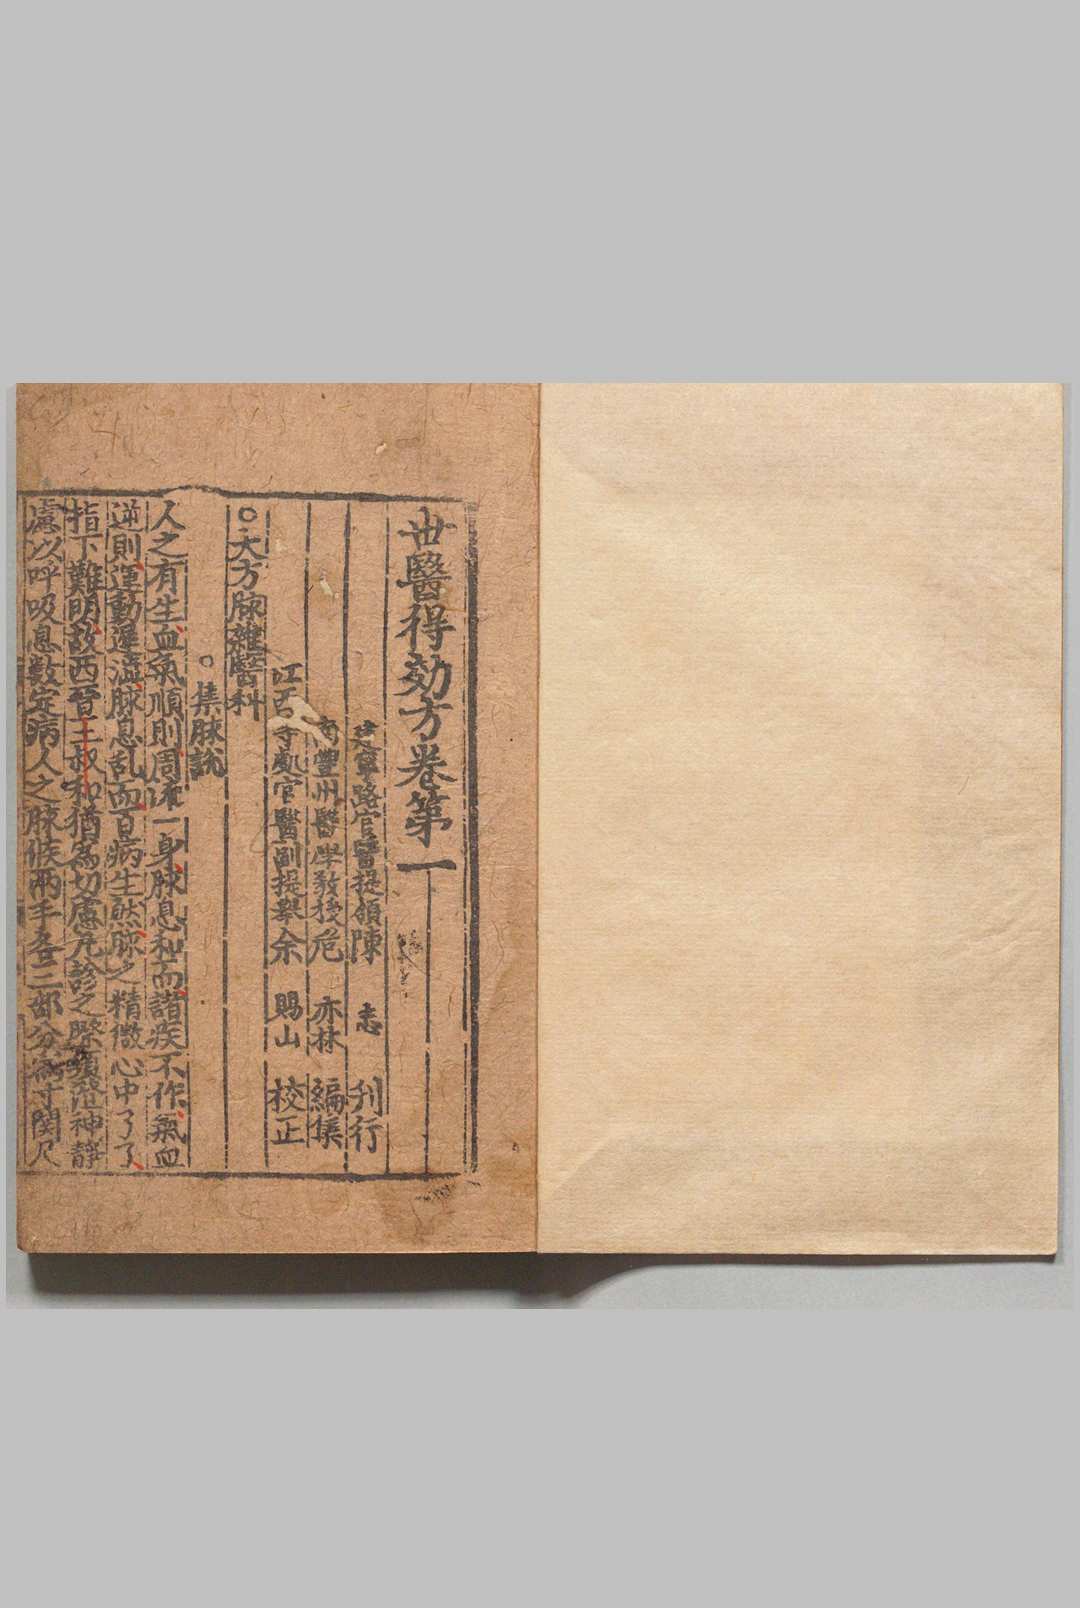 世醫得効方卷第一
建寧路官醫提領陳 志 刋行
南豐州醫學教授危 亦林 編集
江西等處官醫副提舉余 賜山 校正
○大方脉雜醫科
○集脉說
人之有生血氣順則周流一身脉息和而諧疾不作氣血
逆則運動遲濇脉息乱而百病生然脉之精微心中了了
指下難明故西晉王叔和猶為切慮凢診之際須澄神靜
慮以呼吸息数定病人之脉候兩手各三部分為寸関尺